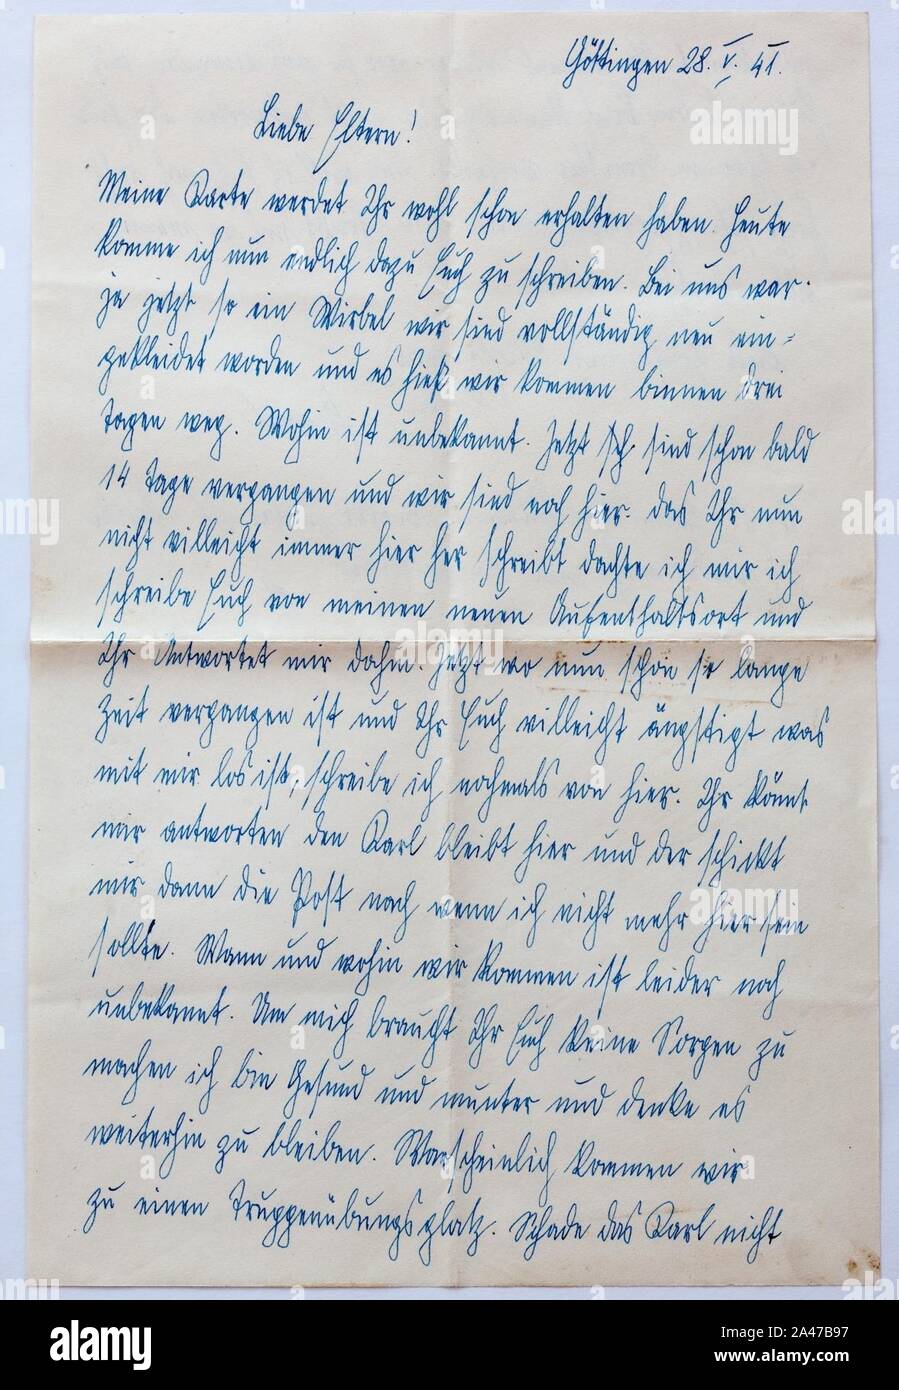 Göttingen 28. V. 41.
Liebe Eltern!
Meine Karte werdet Ihr wohl schon erhalten haben. Heute
komme ich nun endlich dazu Euch zu schreiben. Bei uns war
ja jetzt so ein Wirbel wir sind vollständig neu ein=
gekleidet worden und es hieß wir kommen binnen drei
Tagen weg. Wohin ist unbekannt. Jetzt sind schon bald
14 Tage vergangen und wir sind noch hier. Das Ihr nun
nicht villeicht immer hier her schreibt dachte ich mir ich
schreibe Euch von meinen neuen Aufenthaltsort und
Ihr Antwortet mir dahin. Jetzt wo nun schon so lange
Zeit vergangen ist und Ihr Euch villeicht ängstigt was
mit mir los ist, schreibe ich nochmals von hier. Ihr könnt
mir antworten den Karl bleibt hier und der schickt
mir dann die Post nach wenn ich nicht mehr hier sein
sollte. Wann und wohin wir kommen ist leider noch
unbekannt. Um mich braucht Ihr Euch keine Sorgen zu
machen ich bin Gesund und munter und denke es
weiterhin zu bleiben. Warscheinlich kommen wir
zu einen Truppenübungsplatz. Schade das Karl nicht
alamy
Image ID: 2A47B97
www.alamy.com